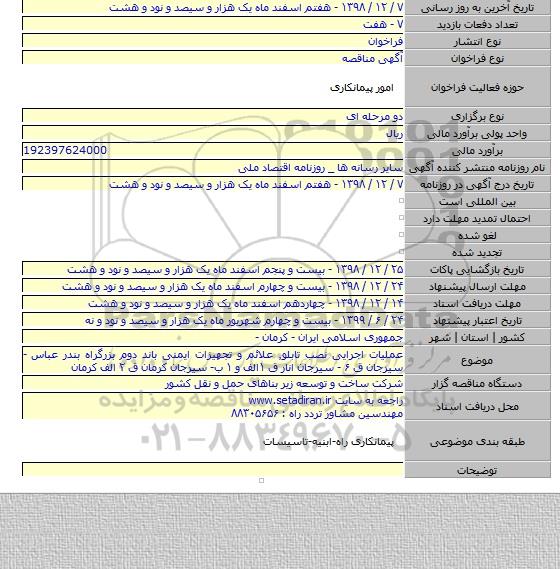 تاریخ آخرین به روز رسانی ۷ / ۱۲ / ۱۳۹۸ - هفتم اسفند ماه یک هزار و سیصد و نود و هشت
تعداد دفعات بازدید ۷ - هفت
نوع انتشار فراخوان
نوع فراخوان آگهی مناقصه
حوزه فعالیت فراخوان امور پیمانکاری
نوع برگزاری دو مرحله ای
واحد پولی برآورد مالی ریال
برآورد مالی 192397624000
نام روزنامه منتشر کننده آگهی سایر رسانه ها _ روزنامه اقتصاد ملی
تاریخ درج آگهی در روزنامه ۷ / ۱۲ / ۱۳۹۸ - هفتم اسفند ماه یک هزار و سیصد و نود و هشت
بین المللی است
احتمال تمدید مهلت دارد
لغو شده
تجدید شده
تاریخ بازگشایی پاکات ۲۵ / ۱۲ / ۱۳۹۸ - بیست و پنجم اسفند ماه یک هزار و سیصد و نود و هشت
مهلت ارسال پیشنهاد ۲۴ / ۱۲ / ۱۳۹۸ - بیست و چهارم اسفند ماه یک هزار و سیصد و نود و هشت
مهلت دریافت اسناد ۱۴ / ۱۲ / ۱۳۹۸ - چهاردهم اسفند ماه یک هزار و سیصد و نود و هشت
تاریخ اعتبار پیشنهاد ۲۴ / ۶ / ۱۳۹۹ - بیست و چهارم شهریور ماه یک هزار و سیصد و نود و نه
کشور | استان | شهر جمهوری اسلامی ایران - کرمان -
موضوع عملیات اجرایی نصب تابلو، علائم و تجهیزات ایمنی باند دوم بزرگراه بندر عباس -
سیرجان ق ۶ - سیرجان انار ق ۱الف و ۱ ب- سیرجان کرمان ق ۲ الف کرمان
دستگاه مناقصه گزار شرکت ساخت و توسعه زیر بناهای حمل و نقل کشور
محل دریافت اسناد راجعه به سایت www.setadiran.ir
مهندسین مشاور تردد راه : ۸۸۳۰۵۶۵۶
طبقه بندی موضوعی پیمانکاری راه-ابنیه-تاسیسات
توضیحات
۰۲۱-۸۸۳۴۹۶۷۰-۵